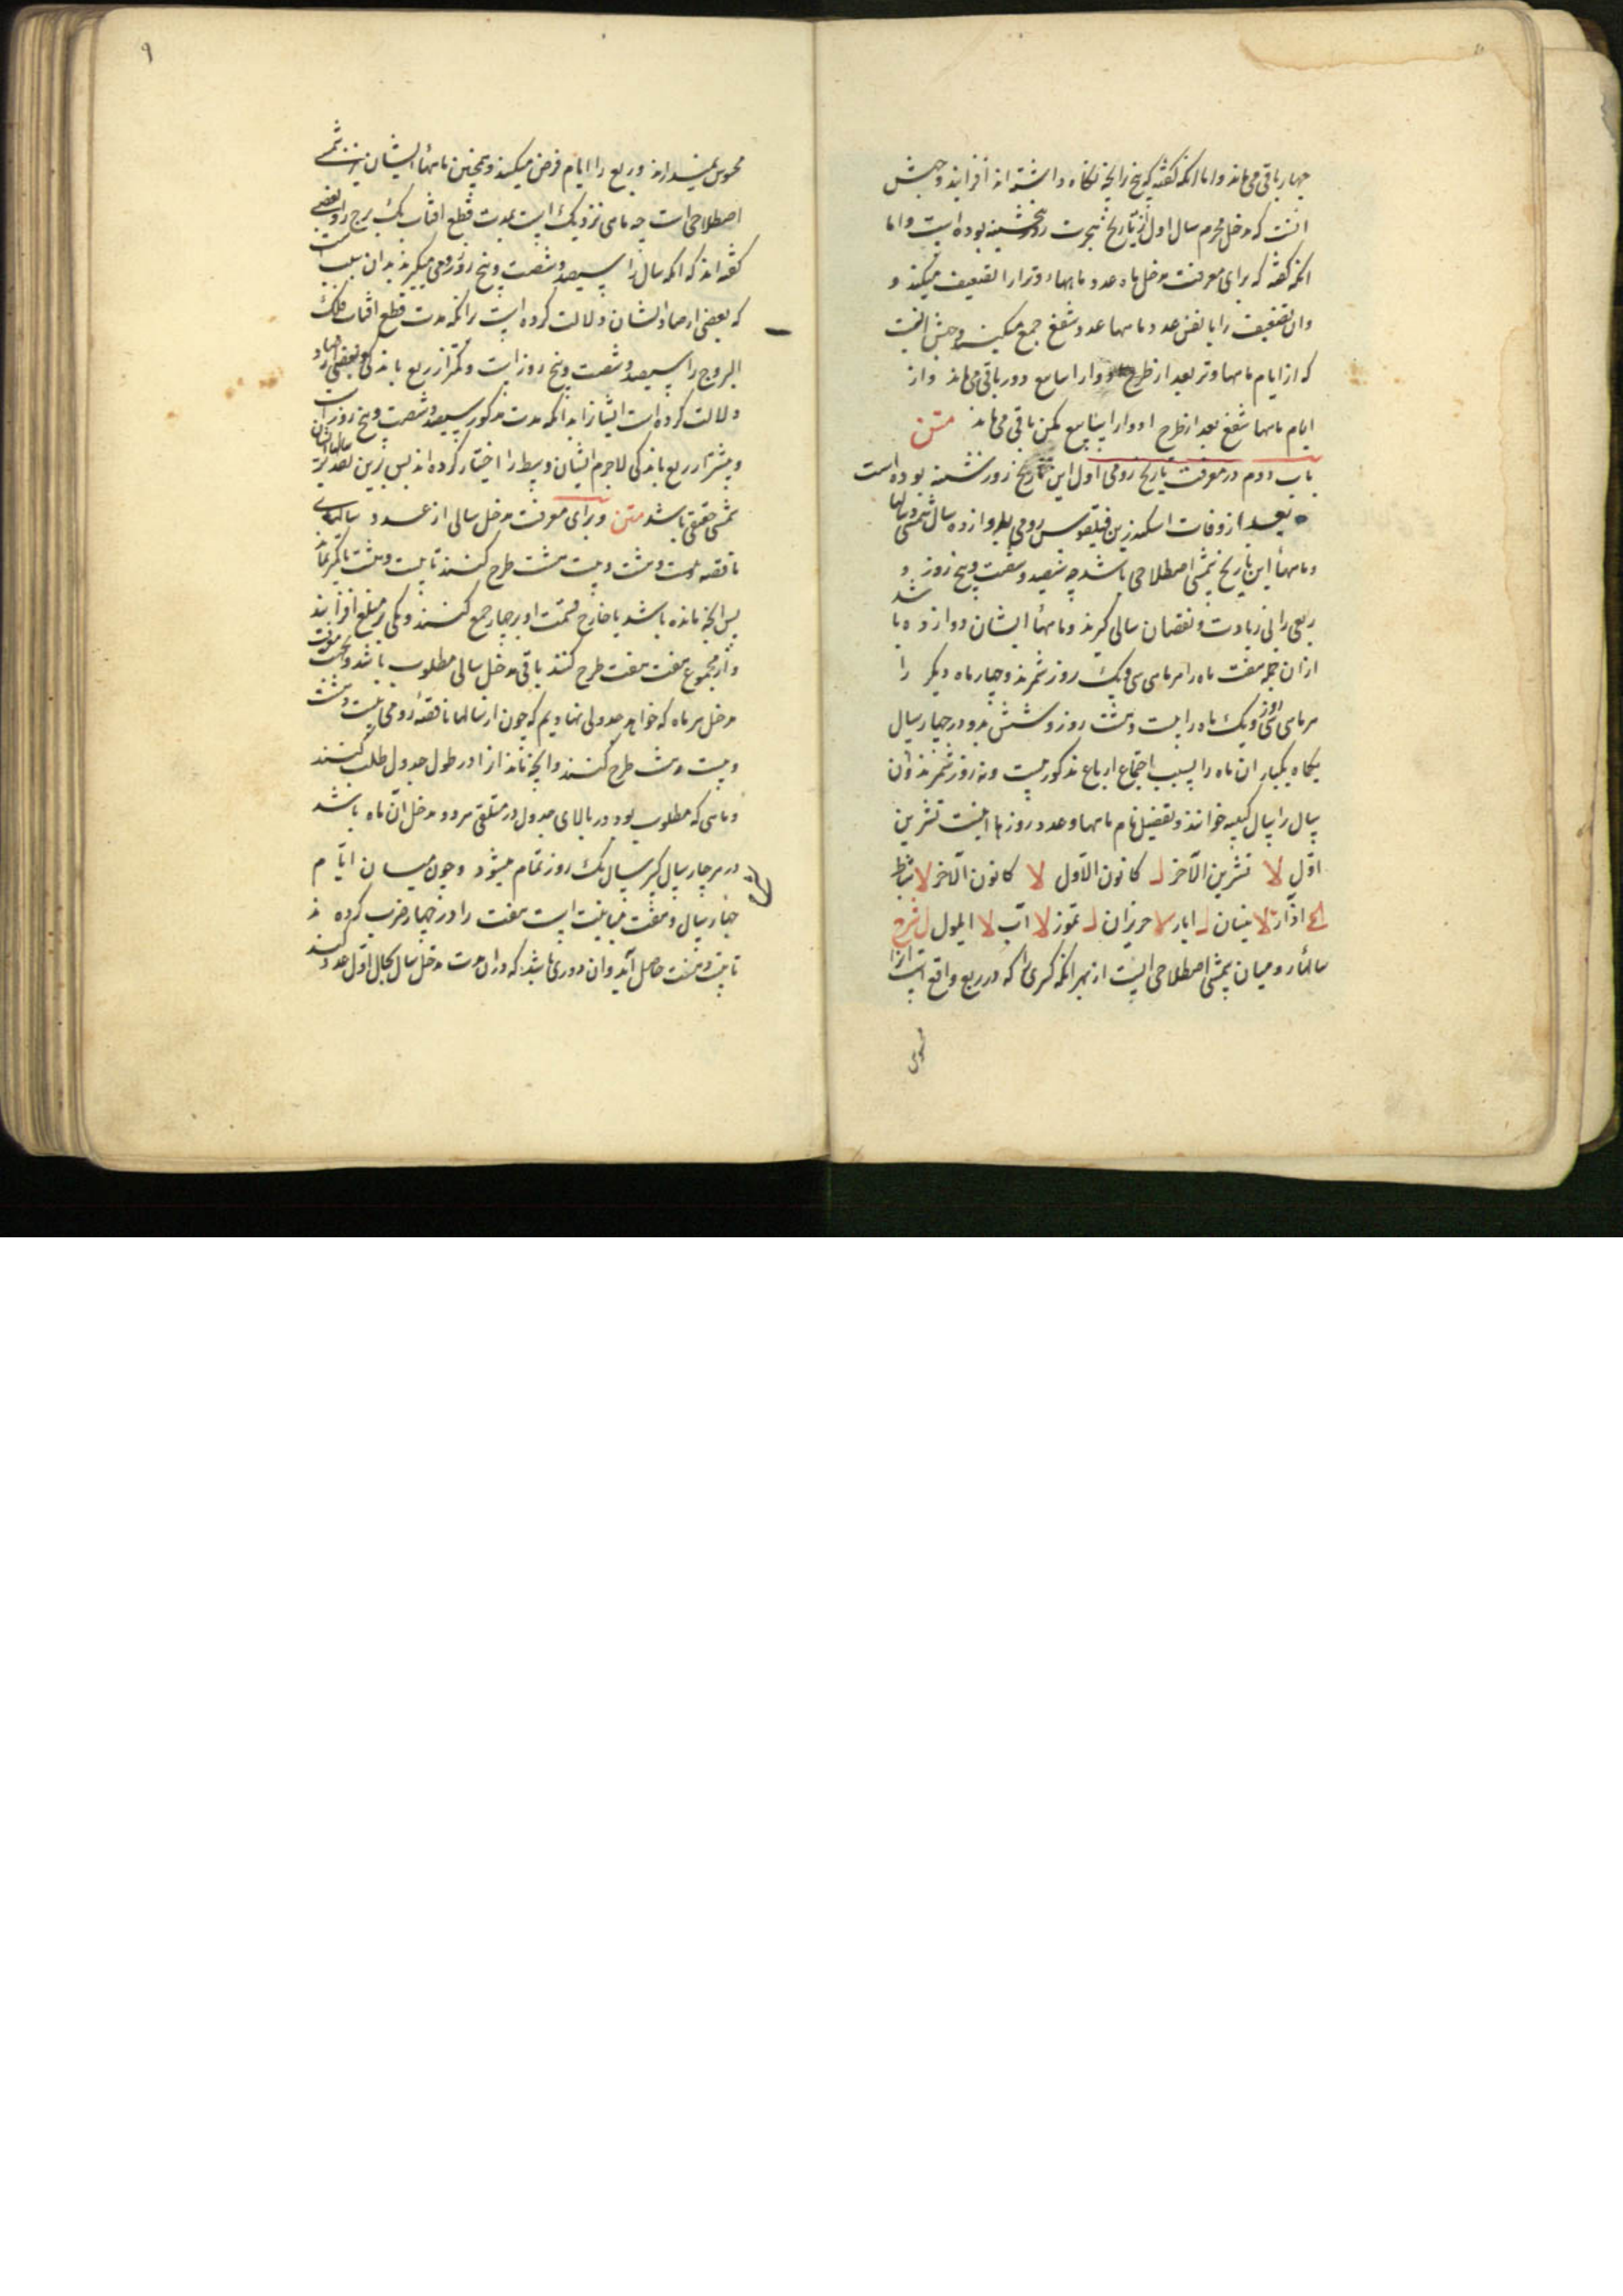 چهار باقی می‌ماند و اما انکه گفته که پنج را بانچه نکاه داشته اند افزایند وجهش
انست که مدخل محرم سال اول از تاریخ هجرت روز پنجشنبه بوده است و اما
انکه گفته که برای معرفت مدخل ماه عدد ماههاء وتر را تضعیف میکنند و
وان تضعیف را با نفس عدد ماهها عدد شفع جمع میکنند وجهش انست
که از ایام ماهها وتر بعد از طرح ادوار اسابیع دو باقی می‌ماند و از
ایام ماهها شفع بعد از طرح ادوار اسابیع یکی باقی می‌ماند متن
باب دوم در معرفت تاریخ رومی اول این تاریخ روز دوشنبه بوده است
بعد از وفات اسکندر بن فیلقوس رومی بدوازده سال شمسی و سالها
وماههاء این تاریخ شمسی اصطلاحی باشد چه سیصد و شصت و پنج روز و
ربعی را بی زیادت و نقصان سالی کیرند و ماههاء ایشان دوازده باشد
ازان جمله هفت ماه را هر ماهی سی و یک روز شمرند و چهار ماه دیکر را
هر ماهی سی روز و یک ماه را بیست و هشت روز و در چهار سال
یکبار ان ماه را بسبب اجتماع ارباع مذکور بیست و نه روز شمرند و ان
سال را سال کبیسه خوانند و تفصیل نام ماهها و عدد روزها اینست تشرین
اول لا تشرین الآخر ل کانون الاول لا کانون الآخر لا شباط
کح اذار لا نیسان ل ایار لا حزیران ل تموز لا اب لا ایلول ل شرح
سالهاء رومیان شمسی اصطلاحی است از بهر انکه کسری را که در ربع واقع است انرا
محسوس
۹
محسوس نمیدارند و ربع را ایام فرض میکنند و همچنین ماههاء ایشان نیز شمسی
اصطلاحی است چه ماهی نزدیک است بمدت قطع افتاب یک برج را و بعضی
گفته اند که انکه سال را سیصد و شصت و پنج روز و ربعی میکیرند بدان سبب است
که بعضی ارصاد ایشان دلالت کرده است بر انکه مدت قطع افتاب فلک
البروج را سیصد و شصت و پنج روز است و کمتر از ربع باندکی و بعضی ارصاد
دلالت کرده است ایشانرا بر انکه مدت مذکور سیصد و شصت و پنج روز است
و بیشتر از ربع باندکی لاجرم ایشان وسط را اختیار کرده اند پس برین تقدیر سالهاشان
شمسی حقیقی باشد متن و برای معرفت مدخل سالی از عدد سالهاء
ناقصه بیست و هشت بیست هشت طرح کنند تا بیست و هشت یا کمتر بماند
پس انچه مانده باشد با خارج قسمت او بر چهار جمع کنند و یکی بر مبلغ افزایند
و از مجموع هفت هفت طرح کنند باقی مدخل سالی مطلوب باشد و بجهت معرفت
مدخل هر ماه که خواهد جدولی نهادیم که چون از سالها ناقصه رومی بیست و هشت
و بیست و هشت طرح کنند و انچه بماند انرا در طول جدول طلب کنند
و ماهی که مطلوب بود در بالای جدول در ملتقی هر دو مدخل ان ماه باشد
در هر چهار سال کسر سال یک روز تمام میشود و چون میان ایام
چهار سال و هفت مباینت است هفت را در چهار ضرب کرده اند
تا بیست و هشت حاصل آید و ان دوری باشد که در ان مدت مدخل سال بحال اول عود کند